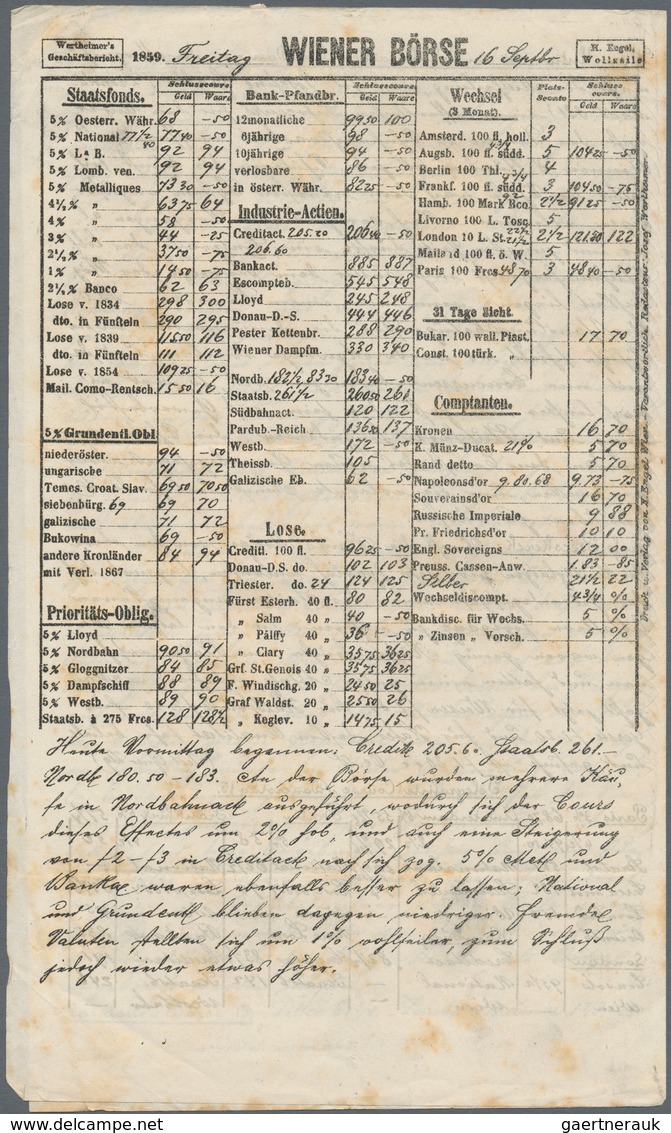 Wertheimer's
Geschäftsbericht.
1859. Freitag WIENER BÖRSE 16 Septbr
H. Engel,
Wollzeile
Staatsfonds. Schlusscours
Geld Waare
5% Oesterr. Währ. 68 -50
5% National 77½ 40 7740 -50
5% L. B. 92 94
5% Lomb. ven. 92 94
5% Metalliques 7330 -50
4½% " 6375 64
4% " 58 -50
3% " 44 -25
2½% " 3750 -75
1% " 1450 -75
2½% Banco 62 63
Lose v. 1834 298 300
dto. in Fünfteln 290 295
Lose v. 1839 11550 116
dto. in Fünfteln 111 112
Lose v. 1854 10925 -50
Mail. Como-Rentsch. 1550 16
5% Grundentl. Obl.
niederöster. 94 -50
ungarische 71 72
Temes. Croat. Slav. 6950 7050
siebenbürg. 69 69 70
galizische 71 72
Bukowina 69 -50
andere Kronländer 84 94
mit Verl. 1867
Prioritäts-Oblig.
5% Lloyd
5% Nordbahn 9050 91
5% Gloggnitzer 84 85
5% Dampfschiff 88 89
5% Westb. 89 90
Staatsb. à 275 Frcs. 128 128½
Bank-Pfandbr. Schlusscours
Geld Waare
12monatliche 9950 100
6jährige 98 -50
10jährige 94 -50
verlosbare 86 -50
in österr. Währ. 8225 -50
Industrie-Actien.
Creditact. 205.20 20640 -50
206.60
Bankact. 885 887
Escompteb. 545 548
Lloyd 245 248
Donau-D.-S. 444 446
Pester Kettenbr. 288 290
Wiener Dampfm. 330 340
Nordb. 182½ 8370 18340 -50
Staatsb. 261½ 26050 261
Südbahnact. 120 122
Pardub.-Reich 13650 137
Westb. 172 -50
Theissb. 105
Galizische Eb. 62 -50
Lose.
Creditl. 100 fl. 9625 -50
Donau-D.S. do. 102 103
Triester. do. 24 124 125
Fürst Esterh. 40 fl. 80 82
" Salm 40 " 40 -50
" Pálffy 40 " 36 -50
" Clary 40 " 3575 3625
Grf. St. Genois 40 " 3575 3625
F. Windischg. 20 " 2450 25
Graf Waldst. 20 " 2550 26
" Keglev. 10 " 1475 15
Wechsel
(3 Monat).
Platz-
Sconto
Schluss
cours.
Geld Waare
Amsterd. 100 fl. holl. 3
Augsb. 100 fl. südd. 4¾ 5 10425 -50
Berlin 100 Thl. 4
Frankf. 100 fl. südd. 4¾ 3 10450 -75
Hamb. 100 Mark Bco. 2½ 9125 -50
Livorno 100 L. Tosc. 5
London 10 L. St. 22½ 21½ 2½ 121.30 122
Mailand 100 fl. ö. W. 5
Paris 100 Frcs 4870 3 4840 -50
31 Tage Sicht.
Bukar. 100 wall. Piast. 17 70
Const. 100 türk. "
Comptanten.
Kronen 16 70
K. Münz-Ducat. 21% 5 70
Rand detto 5 70
Napoleonsd'or 9.80.68 9.73 -75
Souverainsd'or 16 70
Russische Imperiale 9 88
Pr. Friedrichsd'or 10 10
Engl. Sovereigns 12 00
Preuss. Cassen-Anw. 1.83 -85
Silber 21½ 22
Wechseldiscompt. 4¾ %
Bankdisc. für Wechs. 5 %
" Zinsen " Vorsch. 5 %
Druck u. Verlag von H. Engel Wien. Verantwortlich. Redacteur: Josef Wertheimer.
Heute Vormittag begannen: Credit 205.6. Staatsb. 261.–
Nordb 180.50 – 183. An der Börse wurden mehrere Käu-
fe in Nordbahnact ausgeführt, wodurch sich der Cours
dieses Effectes um 2% hob, und auch eine Steigerung
von f2 – f3 in Creditact nach sich zog. 5% Metl und
Bankac waren ebenfalls besser zu lassen; National
und Grundentl blieben dagegen niedriger. Fremde
Valuten stellten sich um 1% wohlfeiler, zum Schluß
jedoch wieder etwas höher.
gaertnerauk